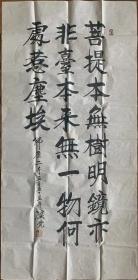 菩提本無樹明鏡亦
非臺本來無一物何
處惹塵埃